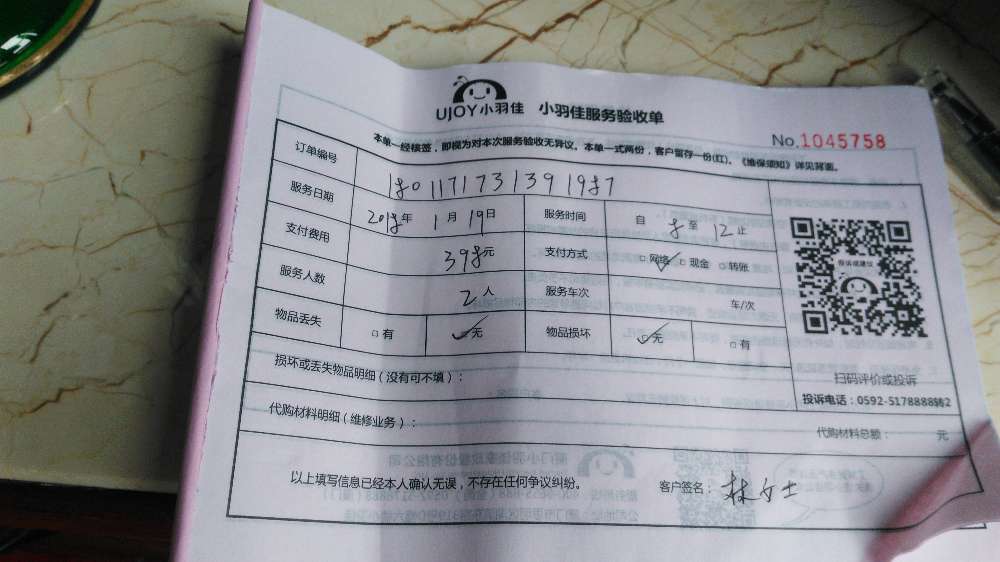 UJOY小羽佳 小羽佳服务验收单
No.1045758
本单一经核签，即视为对本次服务验收无异议。本单一式两份，客户留存一份(红)。《维保须知》详见背面。
订单编号 180117173139 1987
服务日期 2018年 1月 19日 服务时间 自 8 至 12 止
支付费用 398元 支付方式 □网络 □现金 □转账
服务人数 2人 服务车次 车/次
物品丢失 □有 □无 物品损坏 □无 □有
损坏或丢失物品明细（没有可不填）：
代购材料明细（维修业务）：
代购材料总额： 元
投诉或建议
扫码评价或投诉
投诉电话：0592-5178888转2
以上填写信息已经本人确认无误，不存在任何争议纠纷。 客户签名：林女士